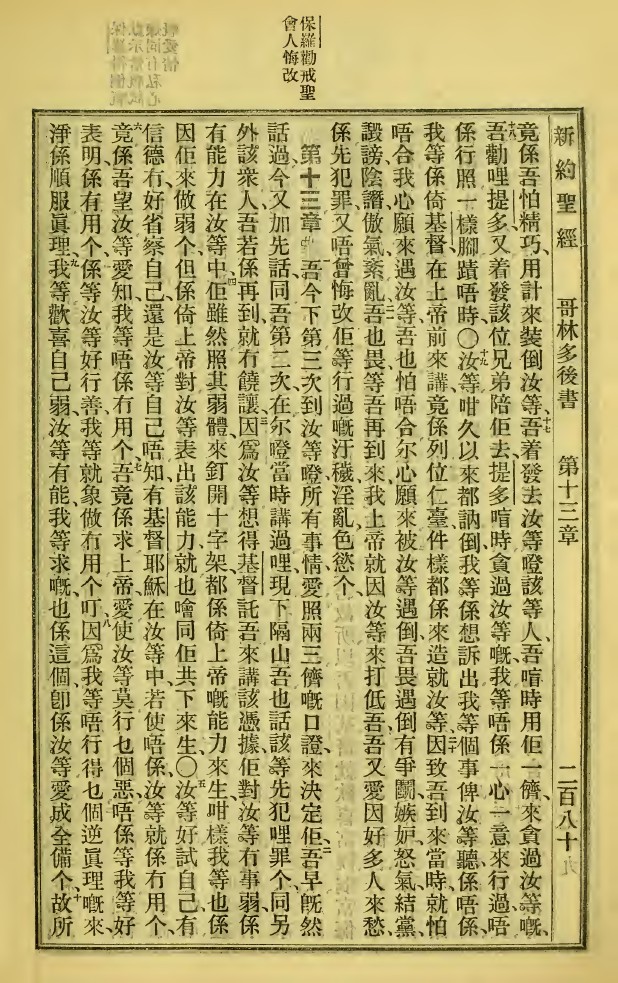 保羅勸戒聖
會人悔改
新約聖經 哥林多後書 第十三章 二百八十
竟係吾怕精巧、用計來裝倒汝等、十七吾着發去汝等嶝該等人、吾喑時用佢一儕來貪過汝等嘅、
十八吾勸哩提多又着發該位兄弟陪佢去提多喑時貪過汝等嘅我等唔係一心一意來行過、唔
係行照一樣脚蹟唔時〇十九汝等咁久以來都訥倒我等係想訴出我等個事俾汝等聽係唔係、
我等係倚基督在上帝前來講竟係列位仁臺件樣都係來造就汝等、二十因致吾到來當時、就怕
唔合我心願來遇汝等吾也怕唔合尔心願來被汝等遇倒吾畏遇倒有爭鬭、嫉妒、怒氣、結黨、
譭謗、陰譖、傲氣、紊亂、二一吾也畏等吾再到來、我上帝就因汝等來打低吾、吾又愛因好多人來愁、
係先犯罪又唔曾悔改佢等行過嘅汙穢、淫亂、色慾个、
第十三章 一吾今下第三次到汝等嶝所有事情愛照兩三儕嘅口證、來決定佢、二吾早旣然
話過、今又加先話同吾第二次在尔嶝當時講過哩、現下隔山吾也話該等先犯哩罪个、同另
外該衆人、吾若係再到就冇饒讓、三因爲汝等想得基督託吾來講該憑據、佢對汝等冇事弱、係
有能力在汝等中、四佢雖然照其弱體來釘開十字架、都係倚上帝嘅能力來生、咁樣我等也係
因佢來做弱个、但係倚上帝對汝等表出該能力、就也噲同佢共下來生、〇五汝等好試自己、有
信德冇、好省察自己、還是汝等自己唔知有基督耶穌在汝等中、若使唔係、汝等就係冇用个、
六竟係吾望汝等愛知、我等唔係冇用个、七吾竟係求上帝、愛使汝等莫行乜個惡、唔係等我等好
表明、係有用个、係等汝等好行善、我等就象做冇用个叮、八因爲我等唔行得乜個逆眞理嘅來、
淨係順服眞理、九我等歡喜自己弱、汝等有能、我等求嘅、也係這個、卽係汝等愛成全備个、十故所